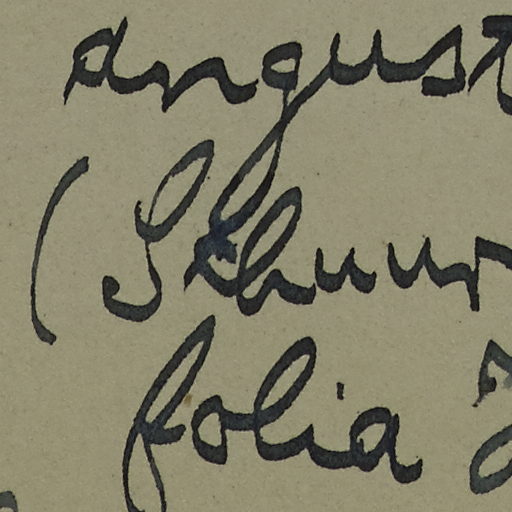 angust
(Schuur
folia